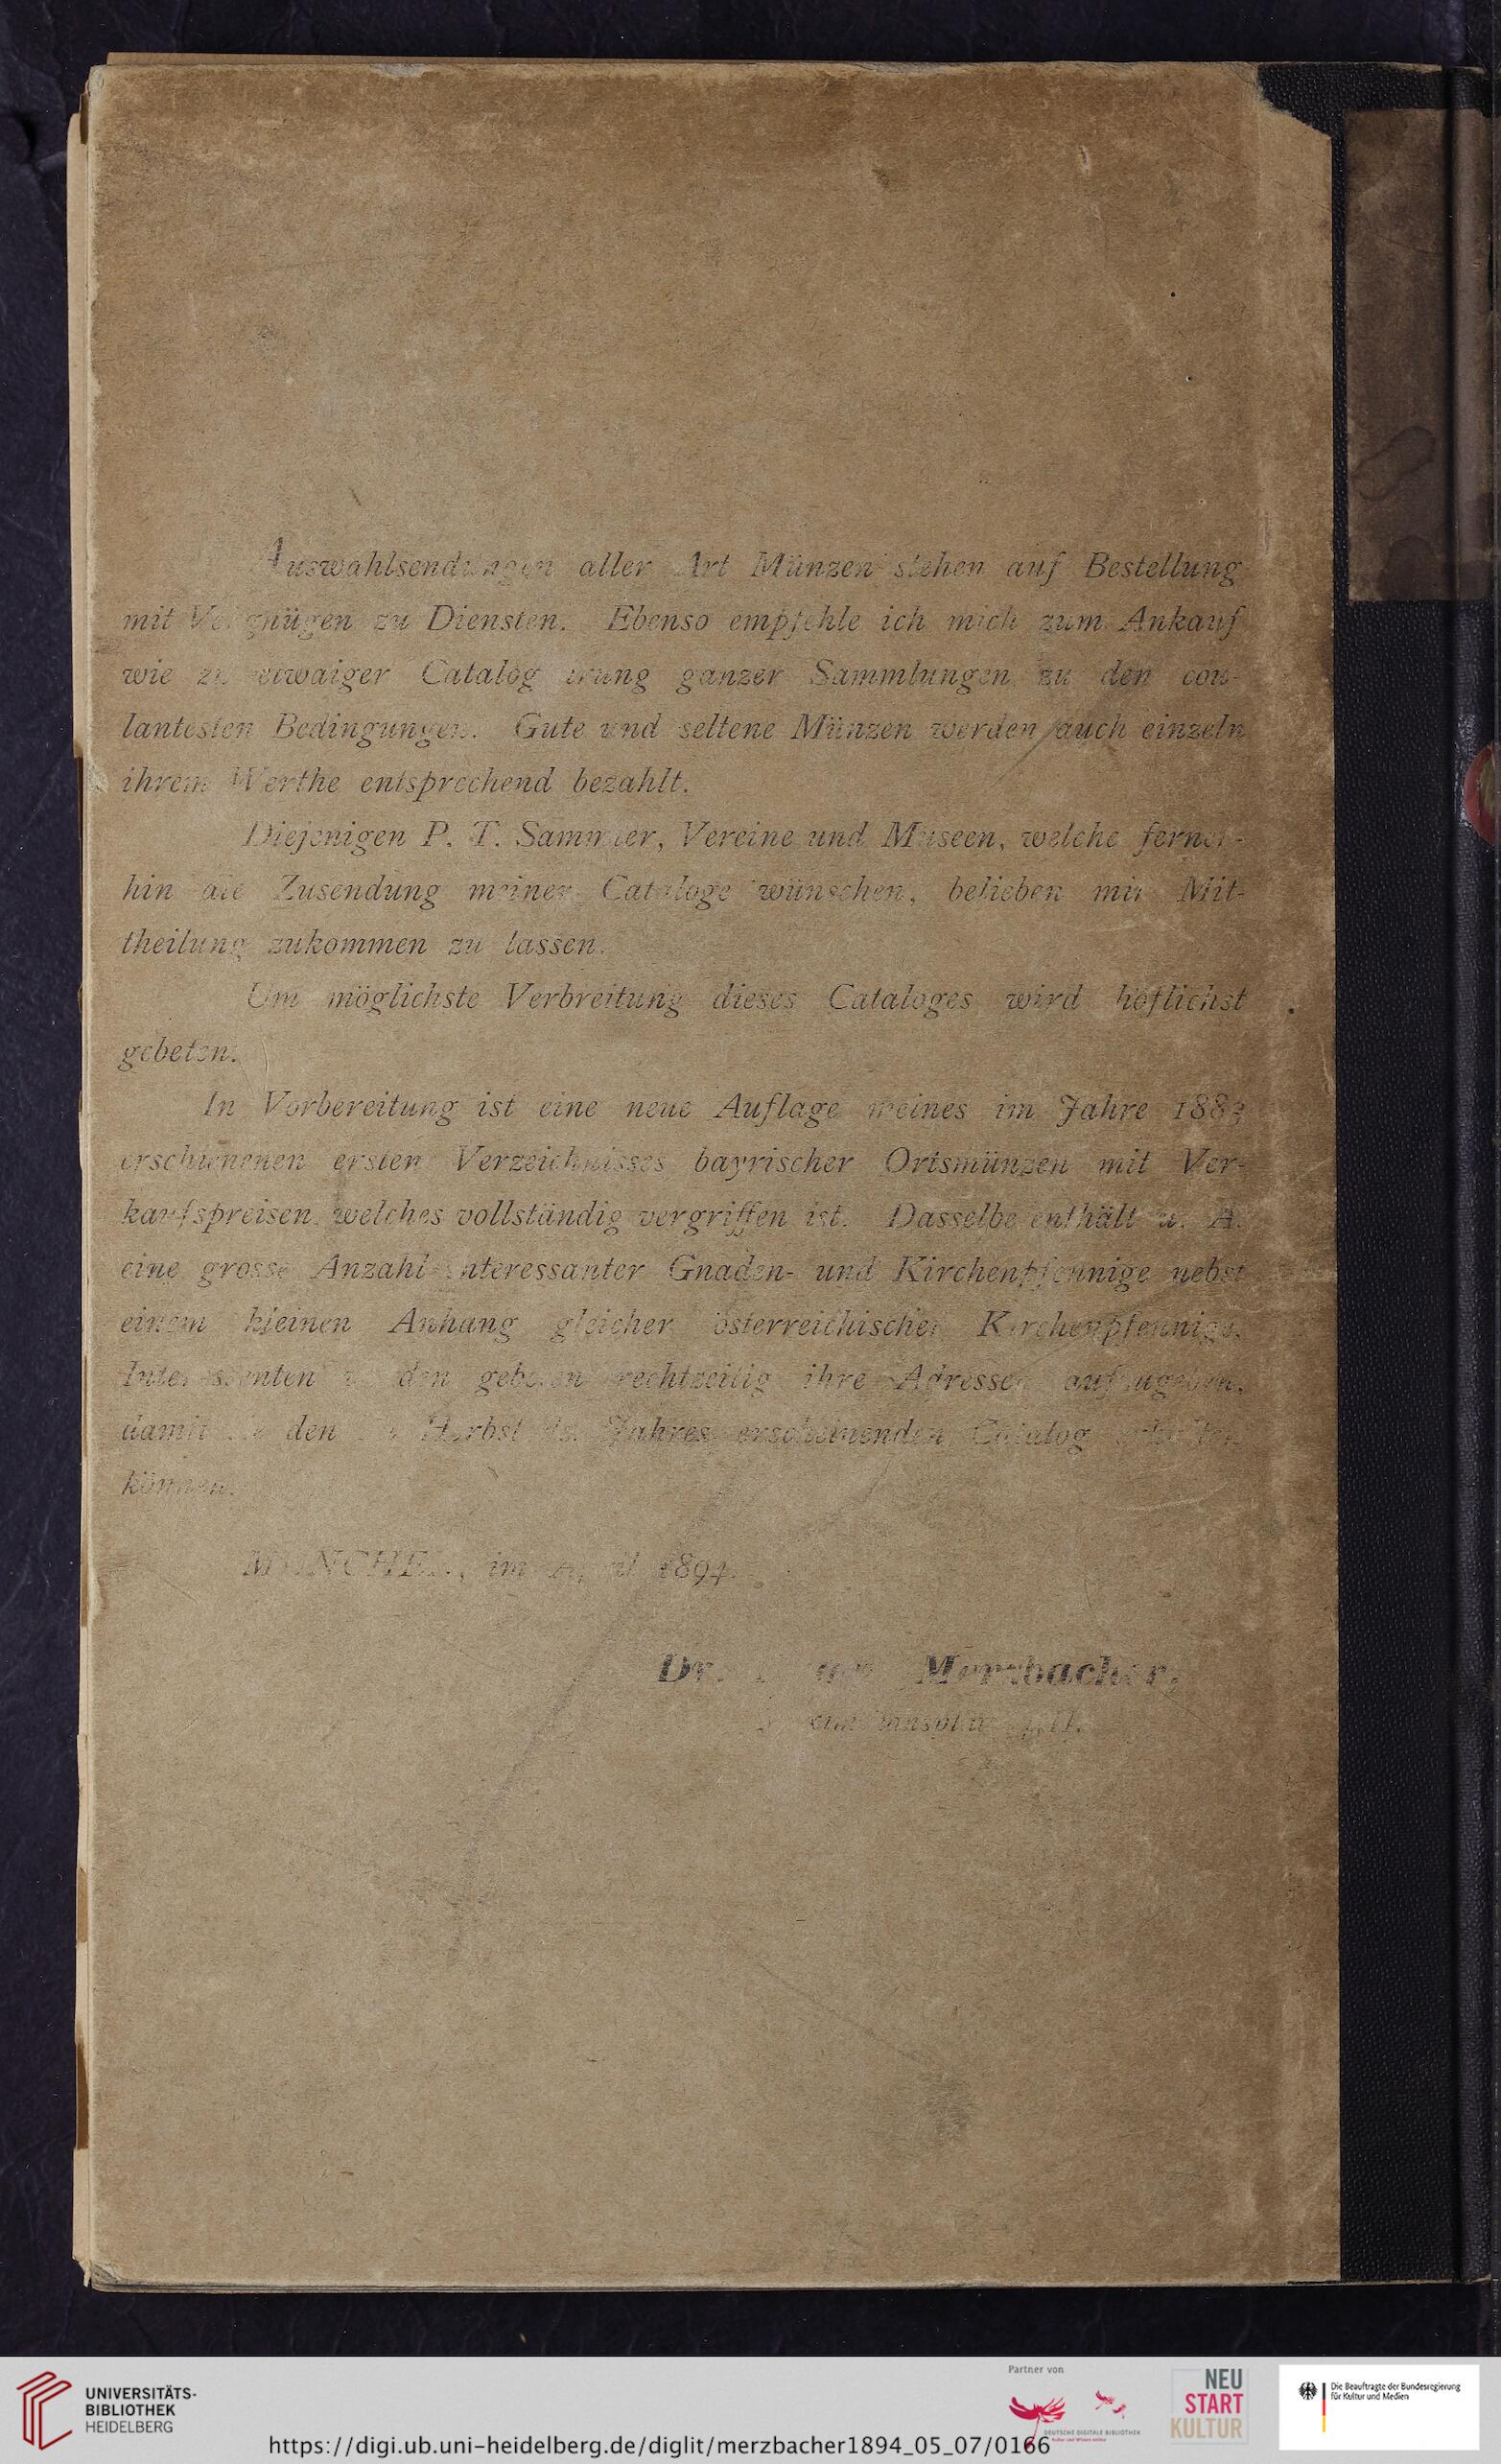 Auswahlsendungen aller Art Münzen stehen auf Bestellung
mit Vergnügen zu Diensten. Ebenso empfehle ich mich zum Ankauf
wie zu etwaiger Catalogisirung ganzer Sammlungen zu den cou-
lantesten Bedingungen. Gute und seltene Münzen werden auch einzeln
ihrem Werthe entsprechend bezahlt.
Diejenigen P. T. Sammler, Vereine und Museen, welche ferner-
hin die Zusendung meiner Cataloge wünschen, belieben mir Mit-
theilung zukommen zu lassen.
Um möglichste Verbreitung dieses Cataloges wird höflichst
gebeten.
In Vorbereitung ist eine neue Auflage meines im Jahre 1883
erschienenen ersten Verzeichnisses bayrischer Ortsmünzen mit Ver-
kaufspreisen, welches vollständig vergriffen ist. Dasselbe enthält u. A.
eine grosse Anzahl interessanter Gnaden- und Kirchenpfennige nebst
einem kleinen Anhang gleicher österreichischer Kirchenpfennige.
Interessenten werden gebeten rechtzeitig ihre Adressen aufzugeben,
damit sie den im Herbst ds. Jahres erscheinenden Catalog erhalten
können.
MÜNCHEN, im April 1894.
Dr. Merzbacher,
UNIVERSITÄTS-
BIBLIOTHEK
HEIDELBERG
https://digi.ub.uni-heidelberg.de/diglit/merzbacher1894_05_07/0166
Partner von
DEUTSCHE DIGITALE BIBLIOTHEK
Kultur und Wissen online
NEU
START
KULTUR
Die Beauftragte der Bundesregierung
für Kultur und Medien